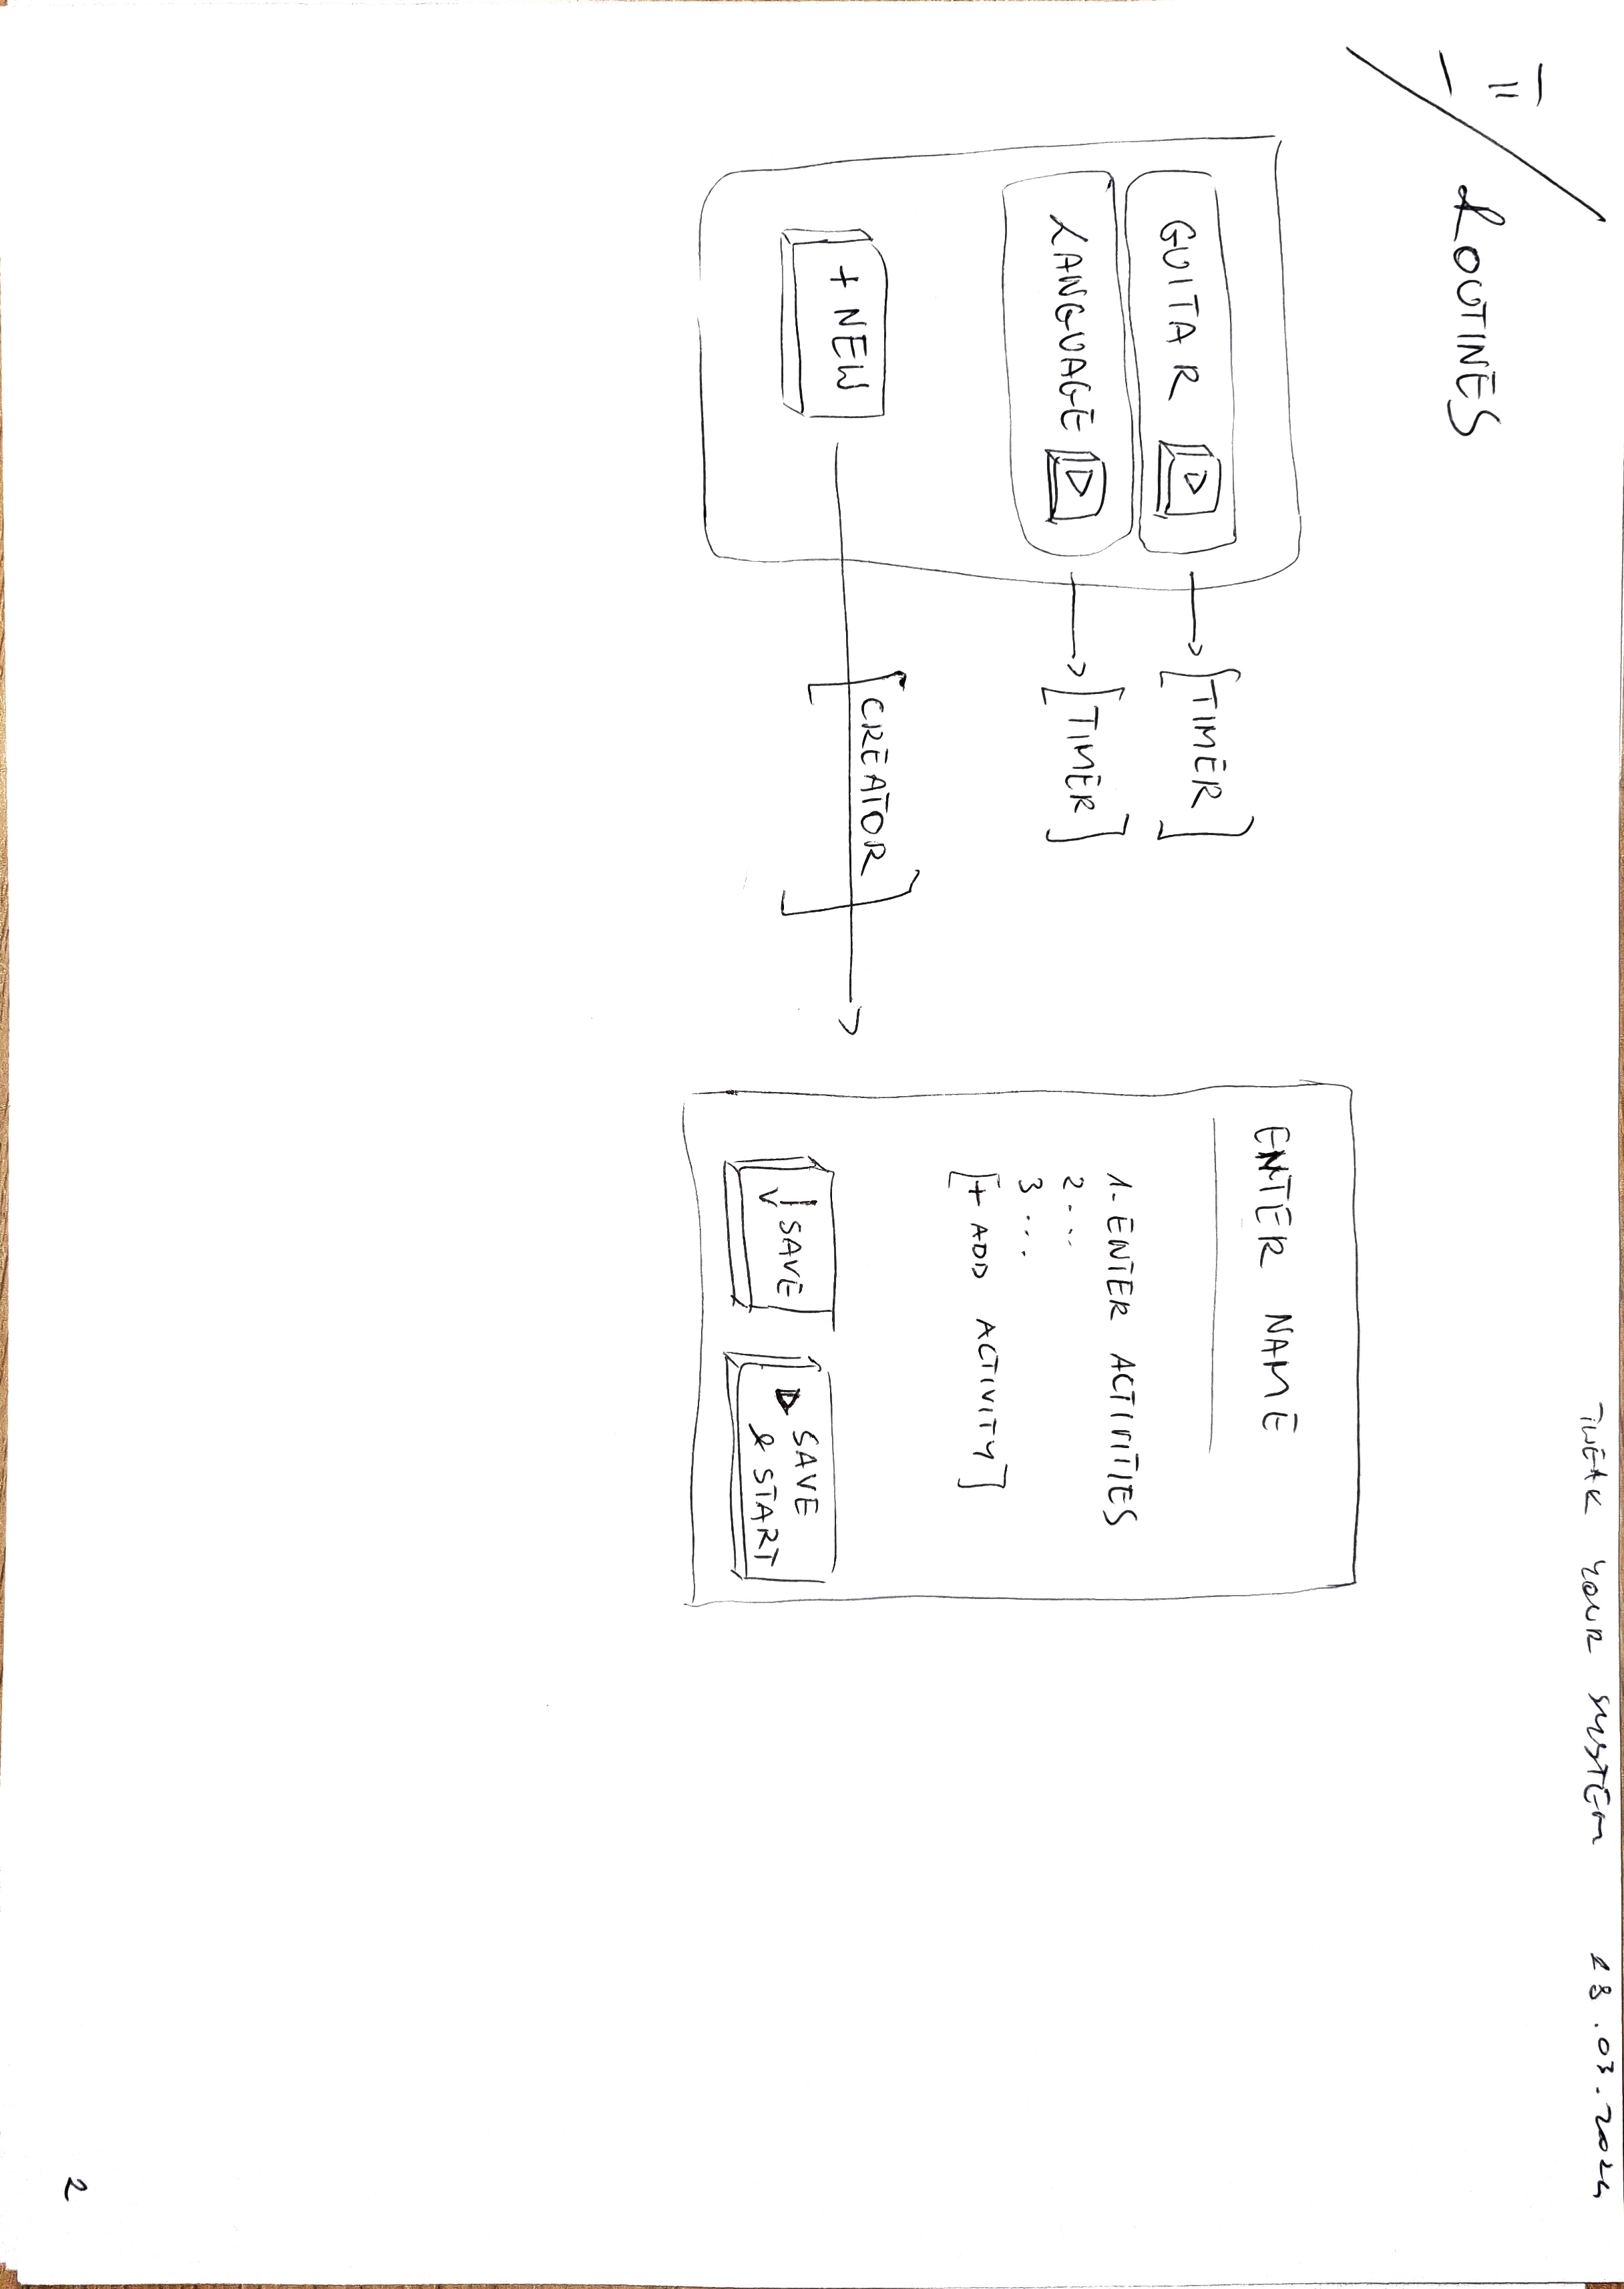 TWEAK YOUR SYSTEM 18.03.2024
II
ROUTINES
GUITAR
→ [TIMER]
LANGUAGE
→ [TIMER]
+ NEW
[CREATOR]
ENTER NAME
1. ENTER ACTIVITIES
2 ...
3 ...
[+ ADD ACTIVITY]
↓ SAVE
SAVE
& START
2